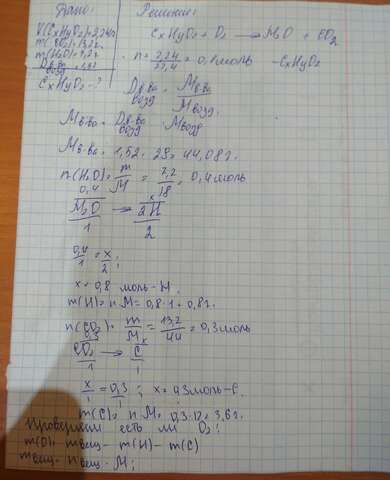 Дано:
Решение:
V(CxHyOz)=2,24л
m(CO₂)=13,2г.
m(H₂O)=7,2г.
Dв-ва возд =1,52
CxHyOz-?
CxHyOz + O₂ → H₂O + CO₂
n = 2,24/22,4 = 0,1моль - CxHyOz
Dв-ва возд = Mв-ва/Mвозд.
Mв-ва = Dв-ва возд · Mвозд
Mв-ва = 1,52 · 29 = 44,08г.
n(H₂O) = m/M = 7,2/18 = 0,4моль
0,4 x
H₂O → 2H
1 2
0,4/1 = x/2;
x = 0,8 моль - H.
m(H) = n·M = 0,8·1 = 0,8г.
n(CO₂) = m/M = 13,2/44 = 0,3моль
0,3 x
CO₂ → C
1 1
x/1 = 0,3/1; x = 0,3моль - C.
m(C) = n·M = 0,3·12 = 3,6г.
Проверяем есть ли O₂:
m(O) = mвещ - m(H) - m(C)
mвещ = nвещ · M;